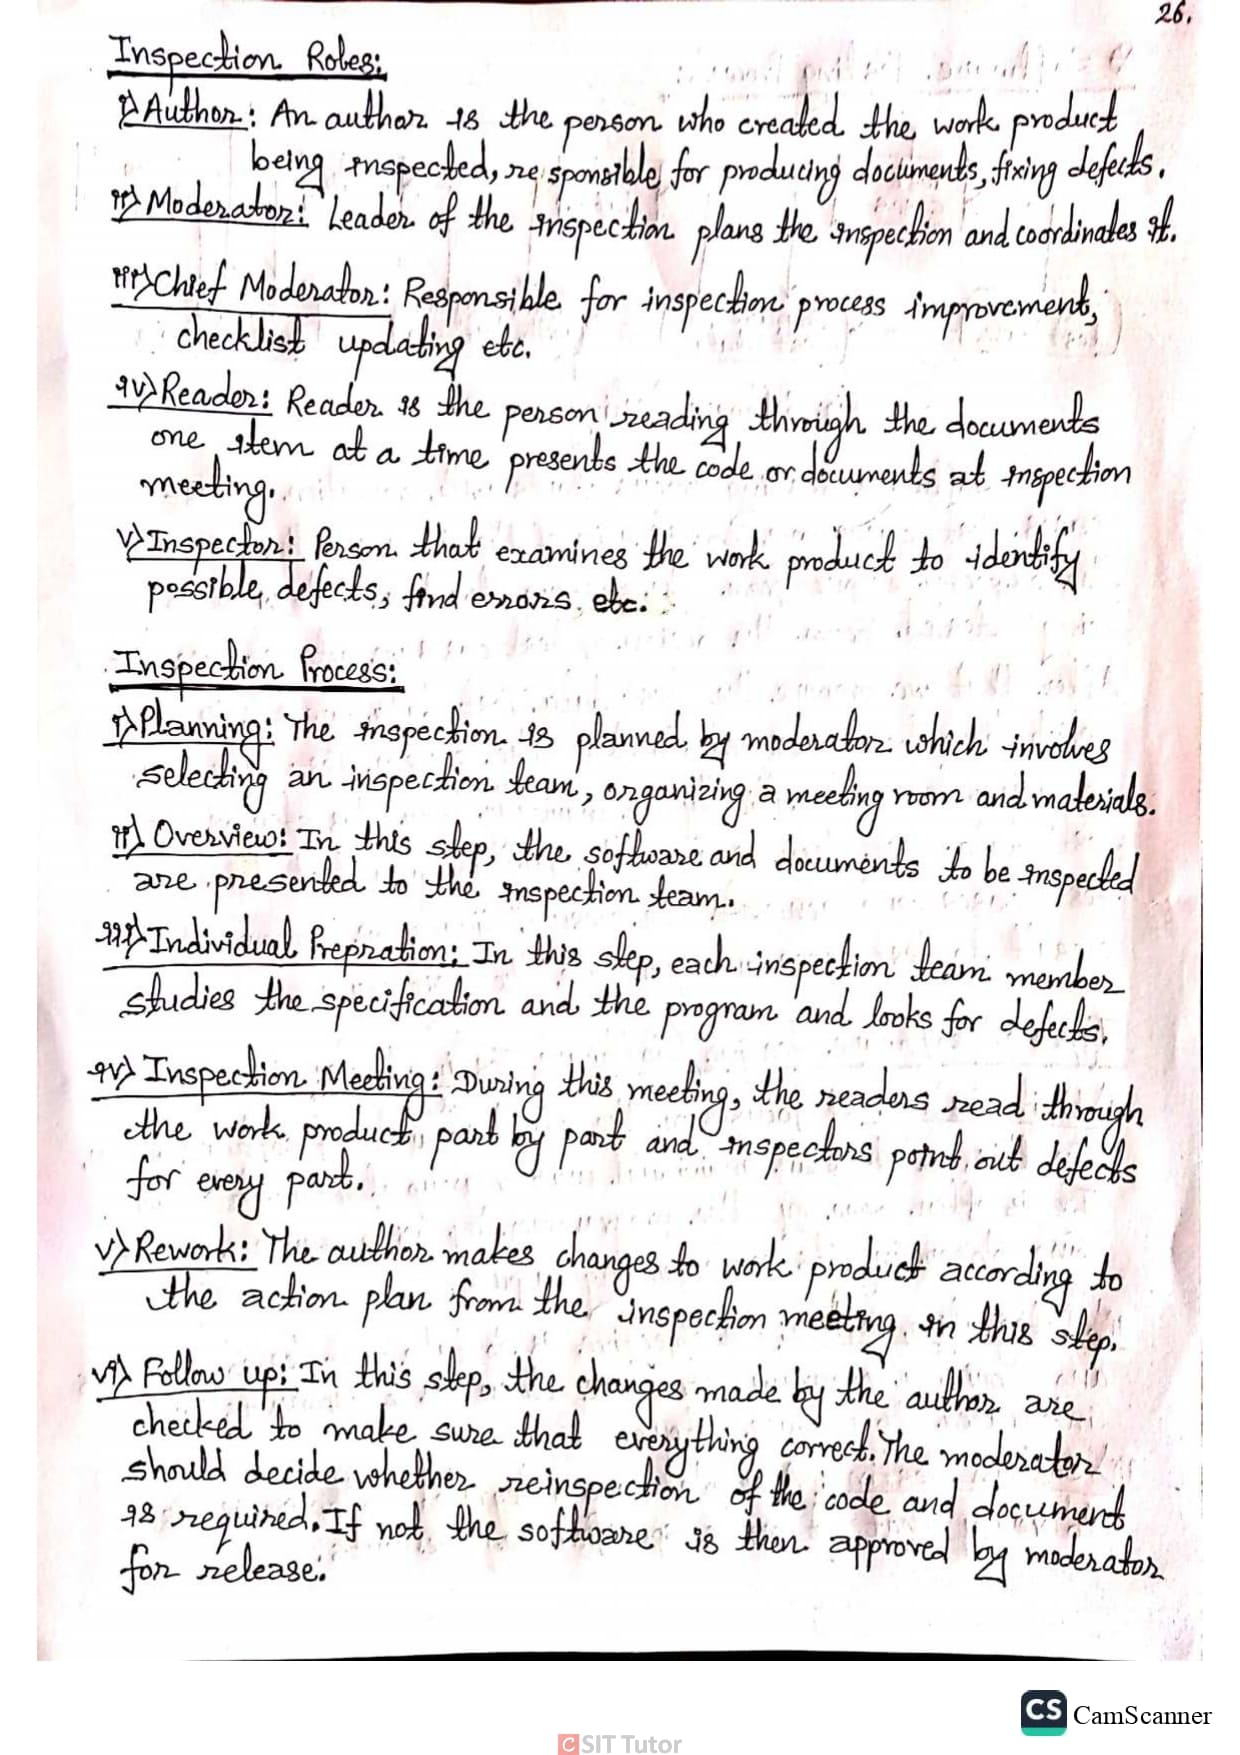 26.
Inspection Roles:
i) Author: An author is the person who created the work product
being inspected, responsible for producing documents, fixing defects.
ii) Moderator: Leader of the inspection plans the inspection and coordinates it.
iii) Chief Moderator: Responsible for inspection process improvement,
checklist updating etc.
iv) Reader: Reader is the person reading through the documents
one item at a time presents the code or documents at inspection
meeting.
v) Inspector: Person that examines the work product to identify
possible defects, find errors etc.
Inspection Process:
i) Planning: The inspection is planned by moderator which involves
selecting an inspection team, organizing a meeting room and materials.
ii) Overview: In this step, the software and documents to be inspected
are presented to the inspection team.
iii) Individual Prepration: In this step, each inspection team member
studies the specification and the program and looks for defects.
iv) Inspection Meeting: During this meeting, the readers read through
the work product, part by part and inspectors point out defects
for every part.
v) Rework: The author makes changes to work product according to
the action plan from the inspection meeting in this step.
vi) Follow up: In this step, the changes made by the author are
checked to make sure that everything correct. The moderator
should decide whether reinspection of the code and document
is required. If not the software is then approved by moderator
for release.
CS CamScanner
CSIT Tutor